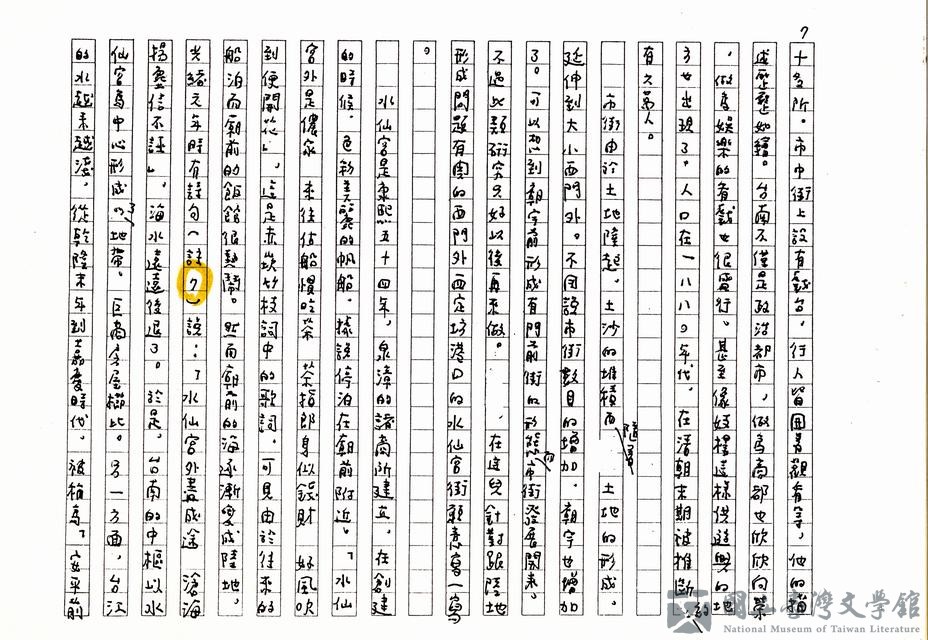 7
十多所。市中街上設有戲台,行人留因者觀看等,他的描
述歷歷如繪。台南不僅是政治都市,做為商都也欣欣向榮
,做為娛樂的看戲也很盛行。甚至像妓樓這樣供遊興的地
方也出現了。人口在一八八〇年代,在清朝末期被推斷約
有六萬人。
市街由於土地陸起,土沙的堆積而隨著土地的形成。
延伸到大小西門外。不因說市街數目的增加,廟宇也增加
了。可以想到廟宇前形成有門前街的形態向市街發展開來。
不過此類研究只好以後再來做。在這兒針對跟陸地
形成問題有關的西門外西定坊港口的水仙宮街願意寫一寫
。
水仙宮是康熙五十四年,泉漳的諸商所建立。在創建
的時候,色彩美麗的帆船,據說停泊在廟前附近。「水仙
宮外是儂家 來往估船慣吃茶 茶指郎身似錢財 好風吹
到便開花」,這是赤崁竹枝詞中的歌詞。可見由於往來的
船泊而廟前的飯館很熱鬧。然而廟前的海逐漸變成陸地,
光緒元年時有詩句(註7)說:「水仙宮外盡成途 滄海
揚塵信不誣」,海水遠遠後退了。於是,台南的中樞以水
仙宮為中心形成了地帶。巨商房屋櫛比。另一方面,台江
的水越來越淺。從乾隆末年到嘉慶時代,被稱為「安平前
國立臺灣文學館
National Museum of Taiwan Literature